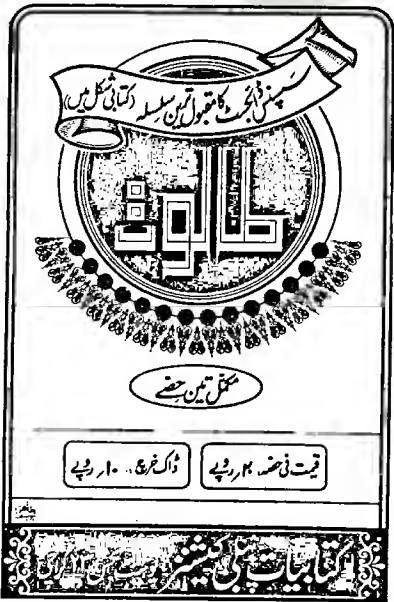 سسپنس ڈائجسٹ کا مقبول ترین سلسلہ (کتابی شکل میں)
طالوت
مکمل تین حصے
قیمت فی حصہ ۲۰ روپے
ڈاک خرچ ۱۰ روپے
کتابیات پبلی کیشنز کراچی